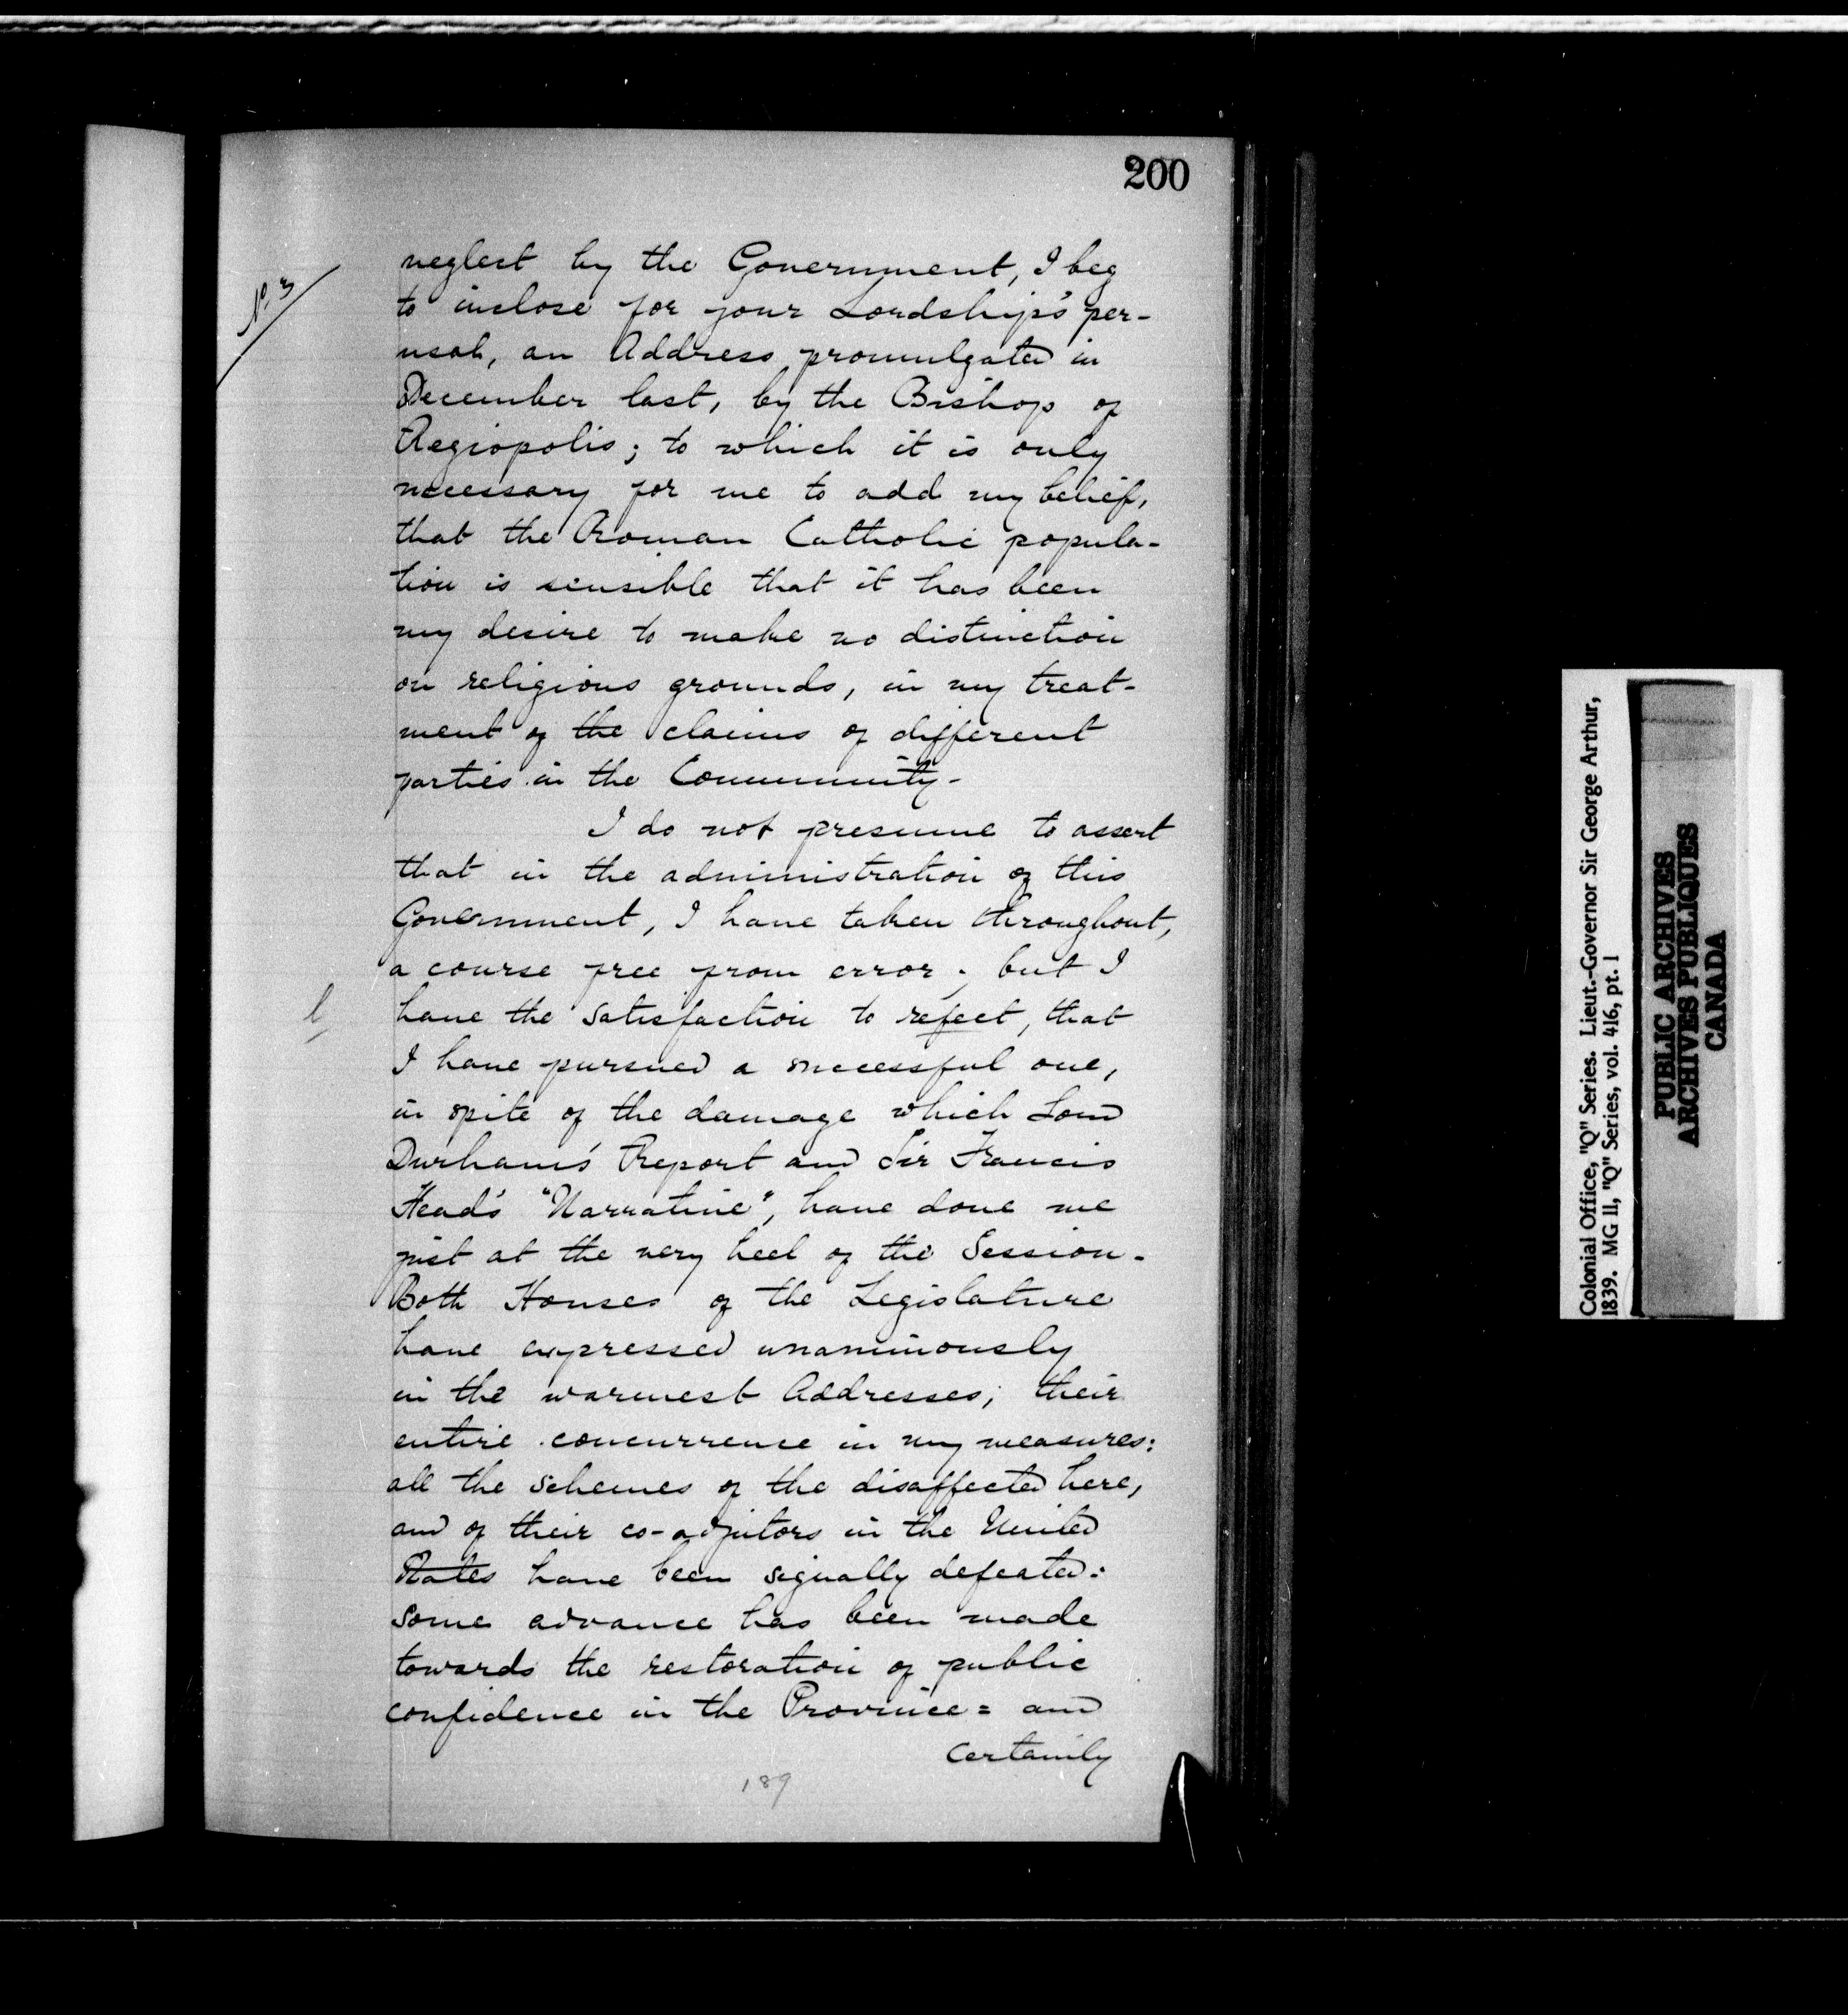 200
No. 3
neglect by the Government, I beg
to inclose for your Lordship's per-
usal, an Address promulgated in
December last, by the Bishop of
Regiopolis; to which it is only
necessary for me to add my belief,
that the Roman Catholic popula-
tion is sensible that it has been
my desire to make no distinction
on religious grounds, in my treat-
ment of the claims of different
parties in the Community-
I do not presume to assert
that in the administration of this
Government, I have taken throughout,
a course free from error; but I
l
have the satisfaction to refect, that
I have pursued a successful one,
in spite of the damage which Lord
Durham's Report and Sir Francis
Head's "Narrative", have done me
just at the very heel of the Session-
Both Houses of the Legislature
have expressed unanimously
in the warmest Addresses; their
entire concurrence in my measures:
all the schemes of the disaffected here,
and of their co-adjutors in the United
States have been signally defeated:
some advance has been made
towards the restoration of public
confidence in the Province = and
certainly
189
Colonial Office, "Q" Series. Lieut.-Governor Sir George Arthur,
1839. MG 11, "Q" Series, vol. 416, pt. 1
PUBLIC ARCHIVES
ARCHIVES PUBLIQUES
CANADA